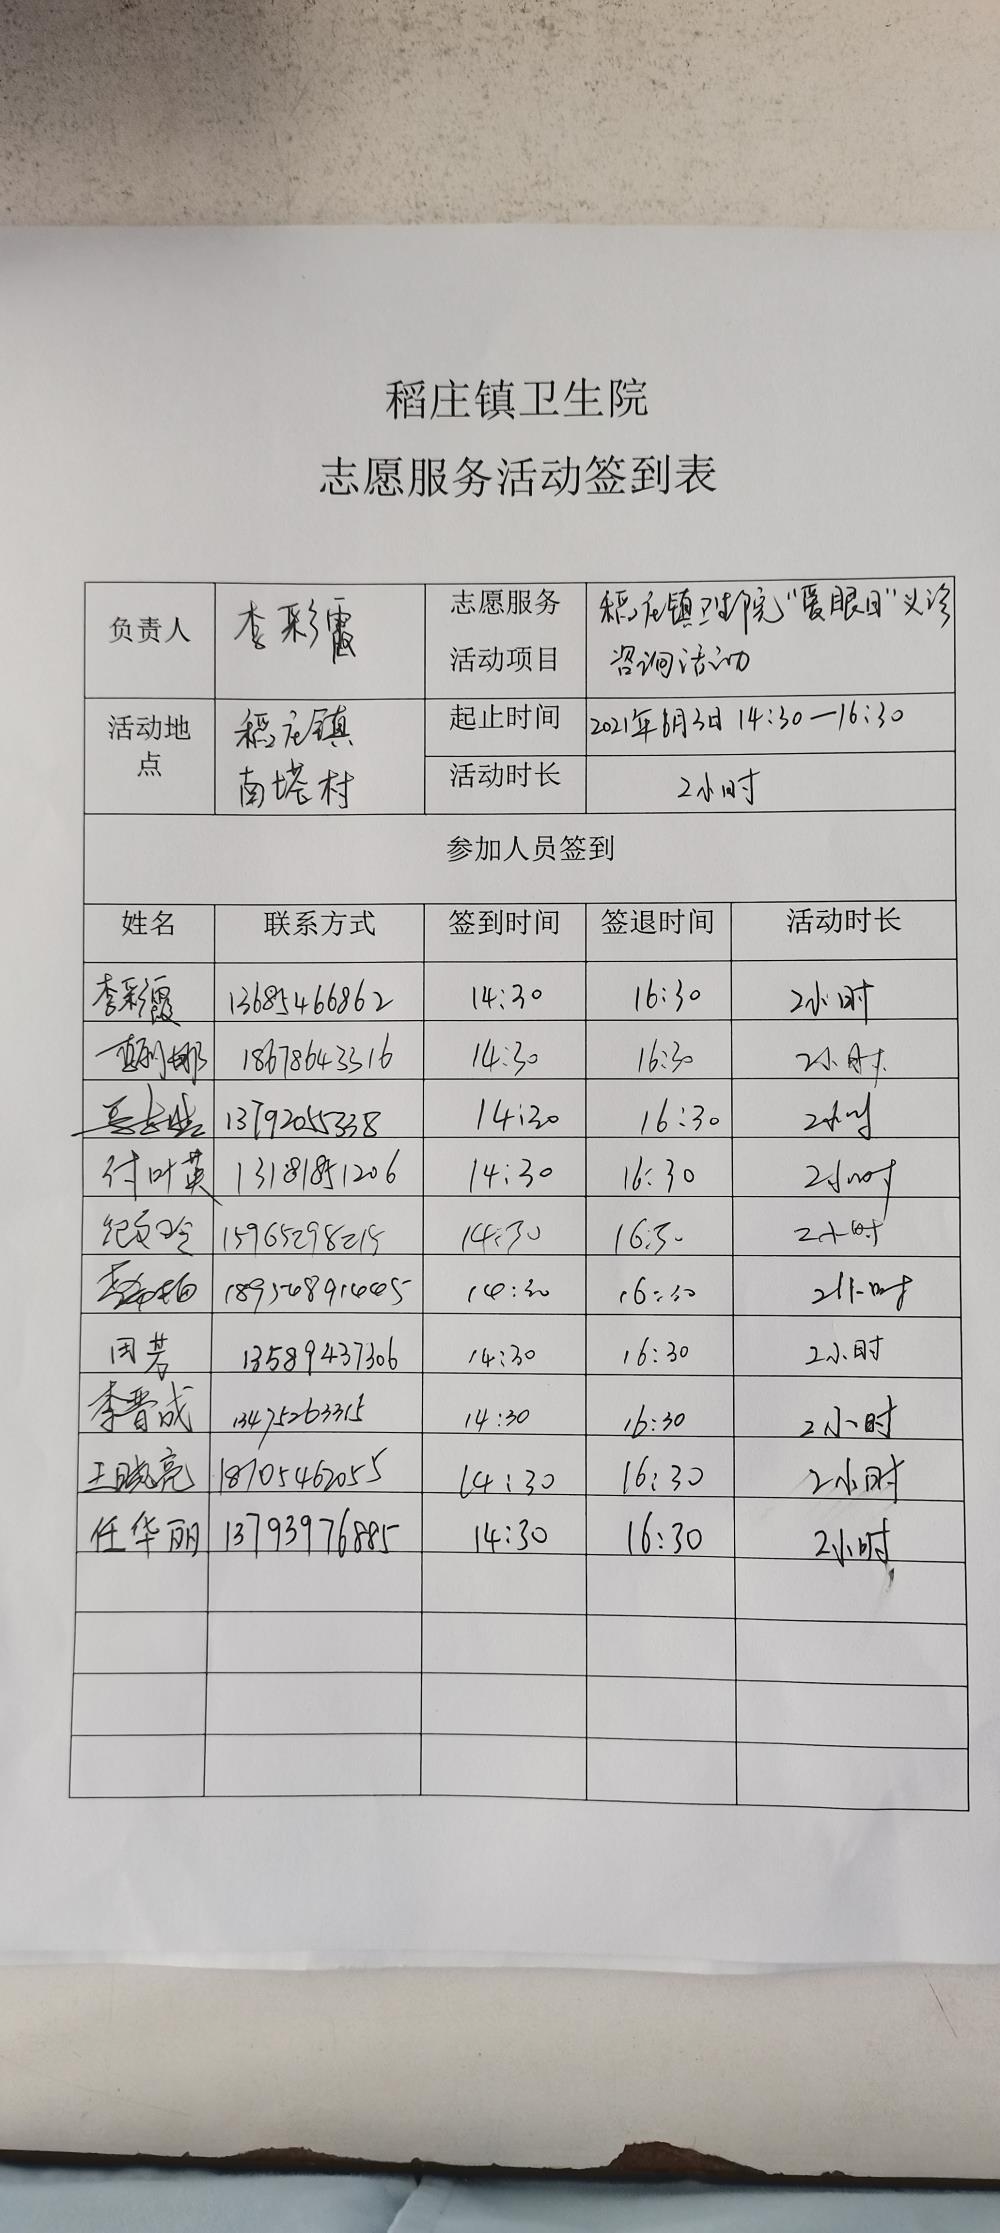 稻庄镇卫生院
志愿服务活动签到表
负责人 李彩霞 志愿服务 稻庄镇卫生院"爱眼日"义诊
活动项目 咨询活动
活动地 稻庄镇 起止时间 2021年6月3日 14:30—16:30
点 南塔村 活动时长 2小时
参加人员签到
姓名 联系方式 签到时间 签退时间 活动时长
李彩霞 13685466862 14:30 16:30 2小时
18678643316 14:30 16:30 2小时
13792055338 14:30 16:30 2小时
付叶英 13181851206 14:30 16:30 2小时
纪文玲 15965298215 14:30 16:30 2小时
14:30 16:30 2小时
周芳 13589437306 14:30 16:30 2小时
李晋成 13475263315 14:30 16:30 2小时
王晓亮 18705462055 14:30 16:30 2小时
任华丽 13793976885 14:30 16:30 2小时